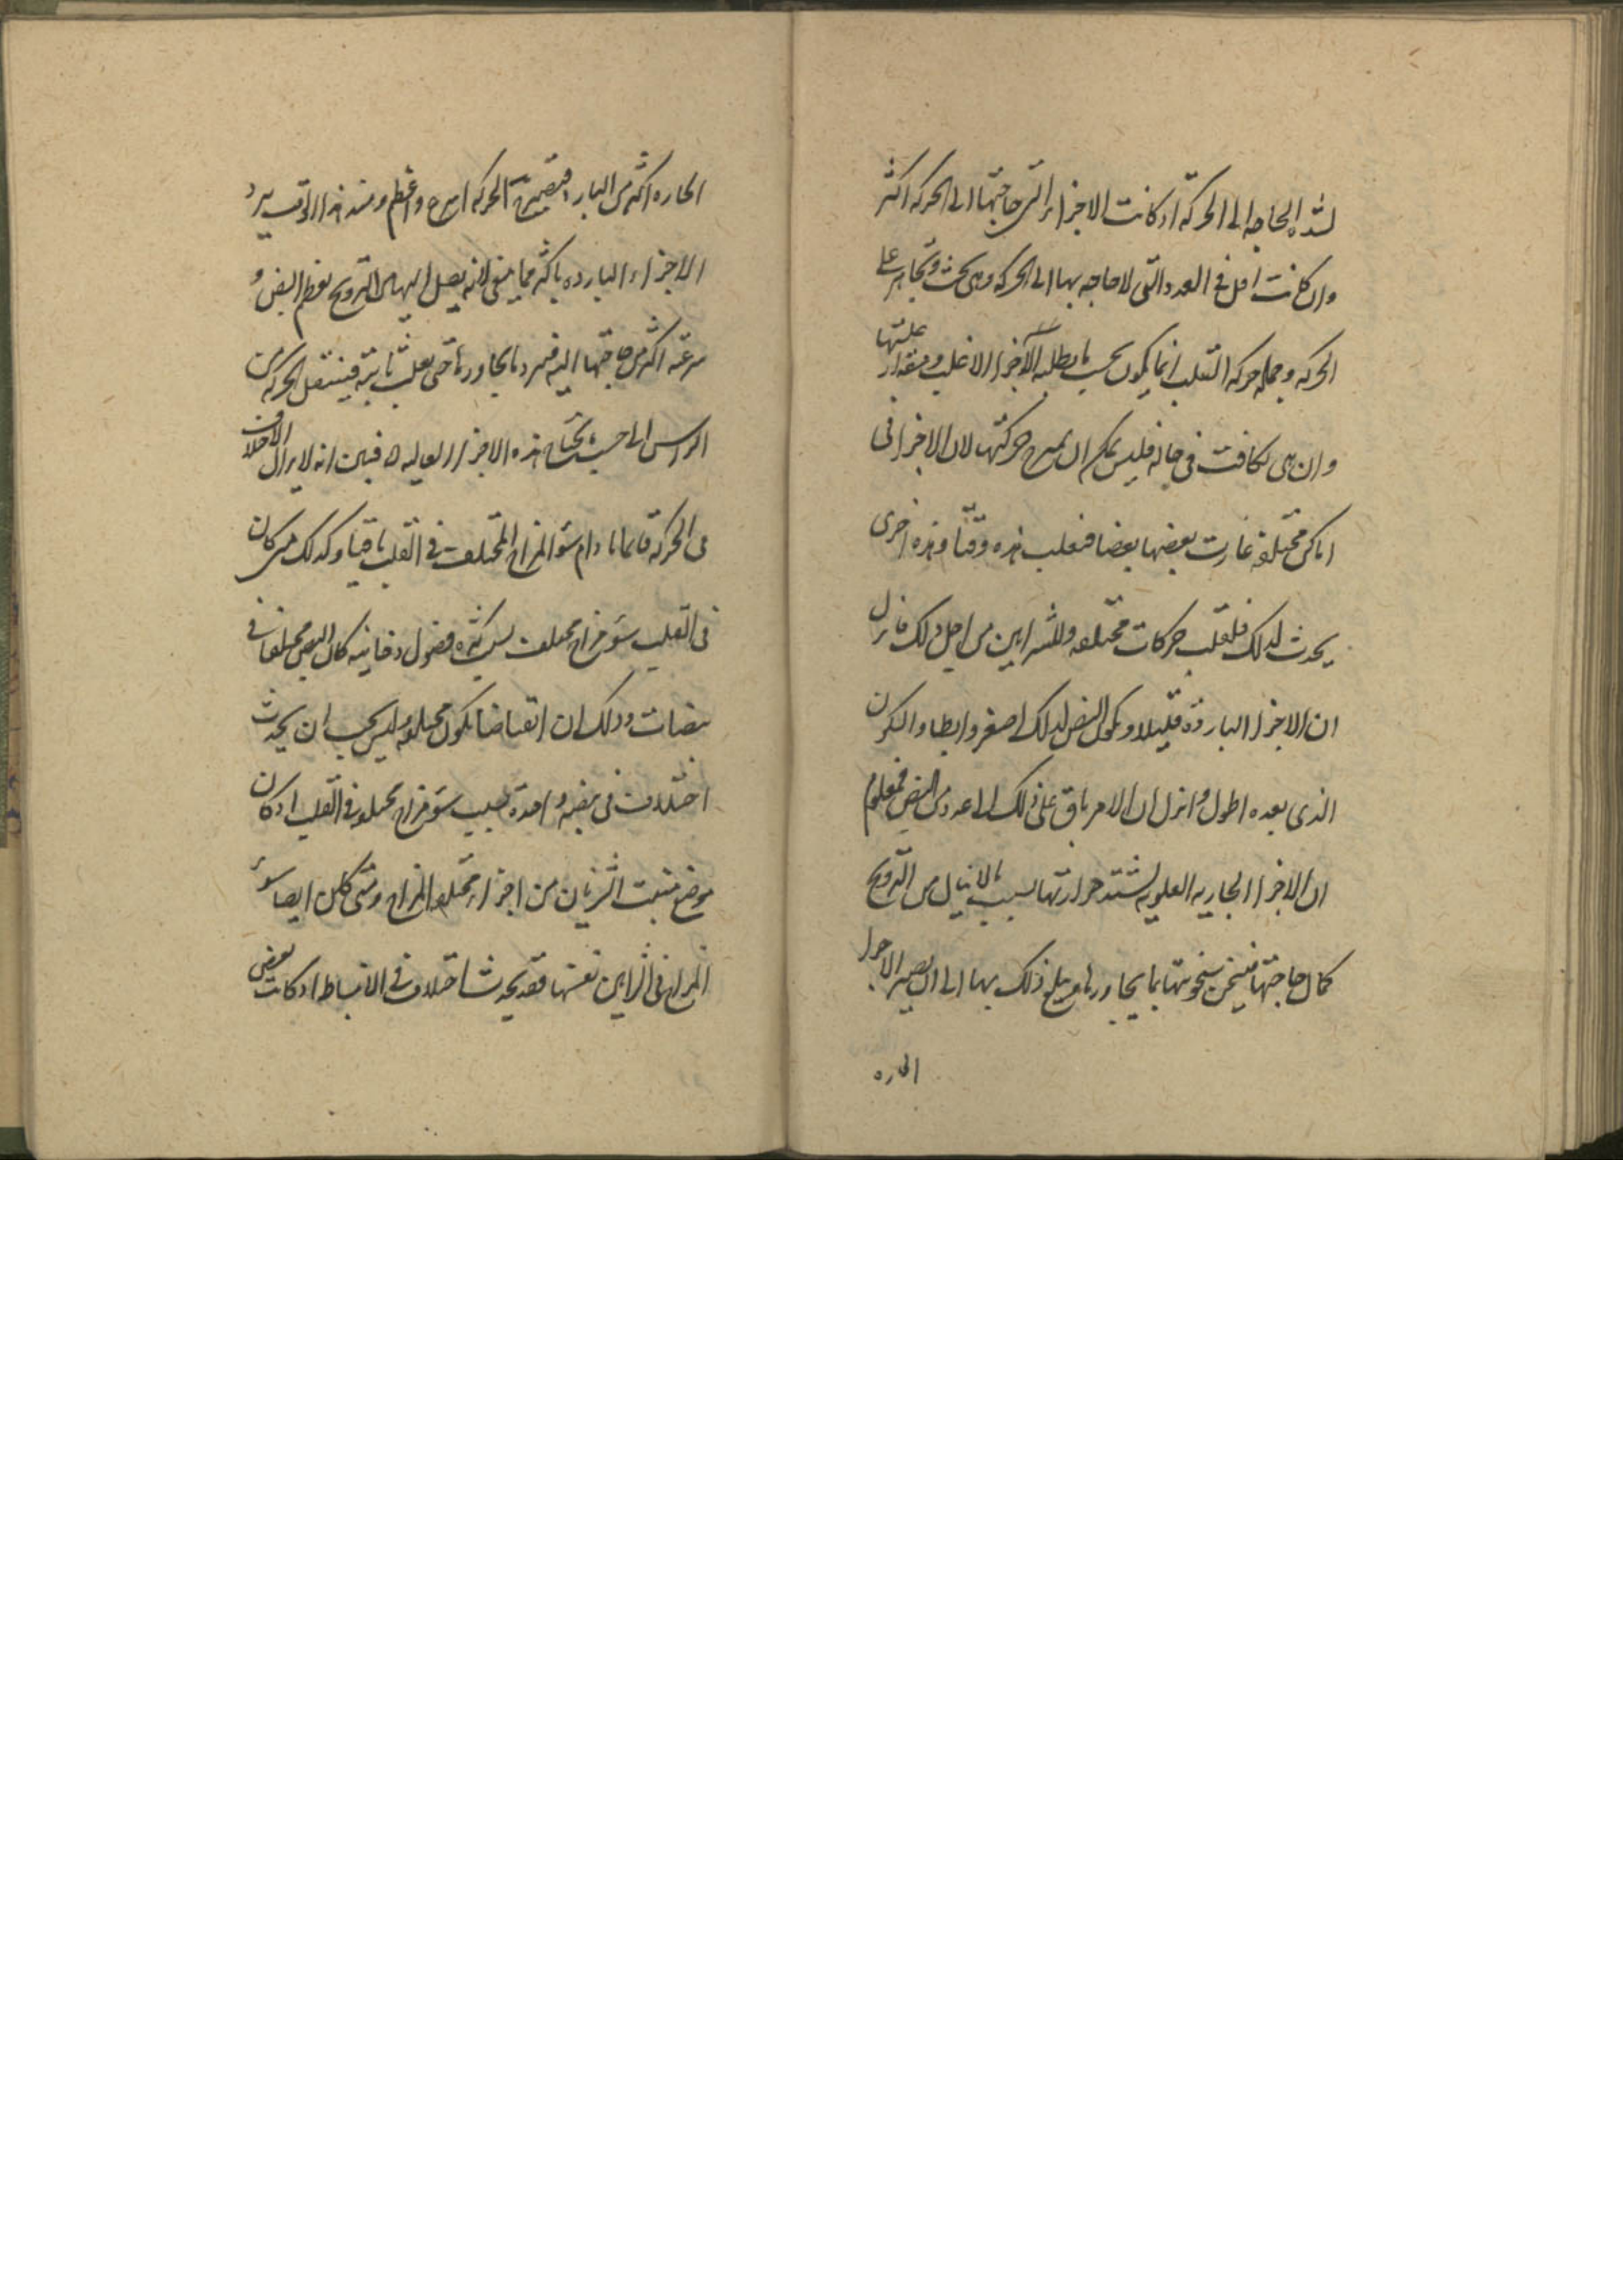 لشده الحاجه الى الحركة اذ كانت الاجزاء التى حاجتها الى الحركه اكثر
وان كانت اقل فى العدد والتى لا حاجه بها الى الحركه وهى تحث وتجاهر على
الحركه وجمله حركه القلب انما يكون بحسب ما يطلبه الاجزاء الاغلب ومقدار غلبتها
وان هى تكافت فى حاله فليس يمكن ان يسرع حركتها لان الاجزا فى
اماكن مختلفة غارت بعضها بعضا فتغلب هذه وقتا وهذه اخرى
يحدث لذلك فللقلب حركات مختلفه وللشرايين من اجل ذلك فانزل
ان الاجزا البارده قليلا ويكون النبض لذلك اصغر وابطا والسكون
الذى بعده اطول وانزل ان الامر باق على ذلك الى عدد من النبض فمعلوم
ان الاجزا الجاريه العلويه يشتد حرارتها بسبب ما لا ينال من الترويح
كمال حاجتها فيسخن بسخونتها بما يجاورها ويبلغ ذلك بها الى ان يصير الاجزا
الحاره
الحاره اكثر من البارد فتصير الحركه اسرع واعظم ومنذ هذا الوقت يبرد
الاجزاء البارده باكثر مما ينبغى لانه يصل اليها من الترويح بعظم النبض و
سرعته اكثر من حاجتها اليه فيبرد ما يجاورها حتى يغلب ثانية فينتقل الحركه من
الراس الى حيث يحتاج هذه الاجزا العاليه فبين انه لا يزال الاختلاف
فى الحركة قائما ما دام سؤ المزاج المختلف فى القلب باقيا وكذلك متى كان
فى القلب سؤ مزاج مختلف ليس كثره فضول دخانيه كان النبض مختلفا فى
نبضات وذلك ان انقباضا يكون مختلفه وليس يجب ان يحدث
اختلاف فى نبضه واحدة بسبب سؤ مزاج مختلف فى القلب اذ كان
موضع منبت الشريان من اجزاء مختلفه المزاج ومتى كان ايضا سؤ
المزاج فى الشرايين نفسها فقد يحدث اختلاف فى الانبساط اذ كانت بعض